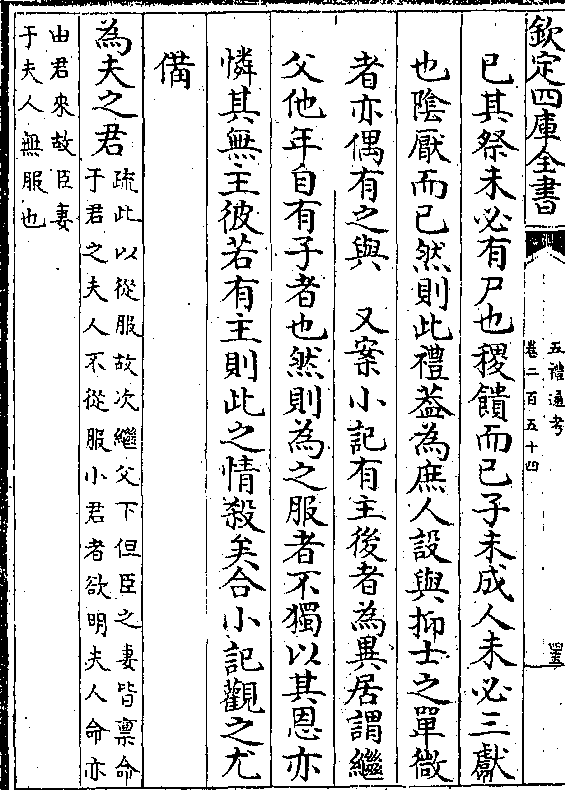 欽定四庫全書
五禮通考
卷二百五十四
已其祭未必有尸也稷饋而已子未成人未必三獻
也陰厭而已然則此禮葢為庶人設與抑士之單微
者亦偶有之與　又案小記有主後者為異居謂繼
父他年自有子者也然則為之服者不獨以其恩亦
憐其無主彼若有主則此之情殺矣合小記觀之尤
備
為夫之君
疏此以從服故次繼父下但臣之妻皆禀命
于君之夫人不從服小君者欲明夫人命亦
由君來故臣妻
于夫人無服也